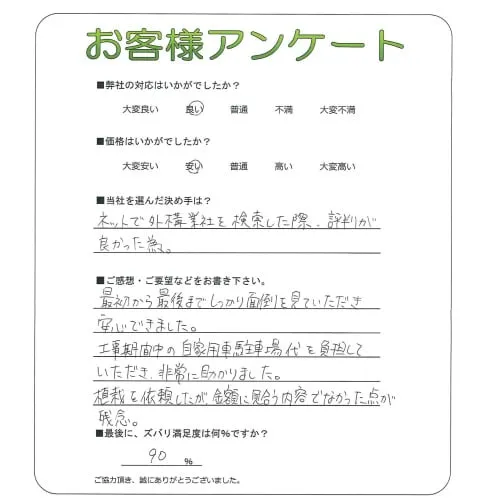 お客様アンケート
■弊社の対応はいかがでしたか？
大変良い 良い 普通 不満 大変不満
■価格はいかがでしたか？
大変安い 安い 普通 高い 大変高い
■当社を選んだ決め手は？
ネットで外構業社を検索した際、評判が
良かった為。
■ご感想・ご要望などをお書き下さい。
最初から最後までしっかり面倒を見ていただき
安心できました。
工事期間中の自家用車駐車場代を負担して
いただき、非常に助かりました。
植栽を依頼したが、金額に見合う内容でなかった点が
残念。
■最後に、ズバリ満足度は何％ですか？
90 %
ご協力頂き、誠にありがとうございました。